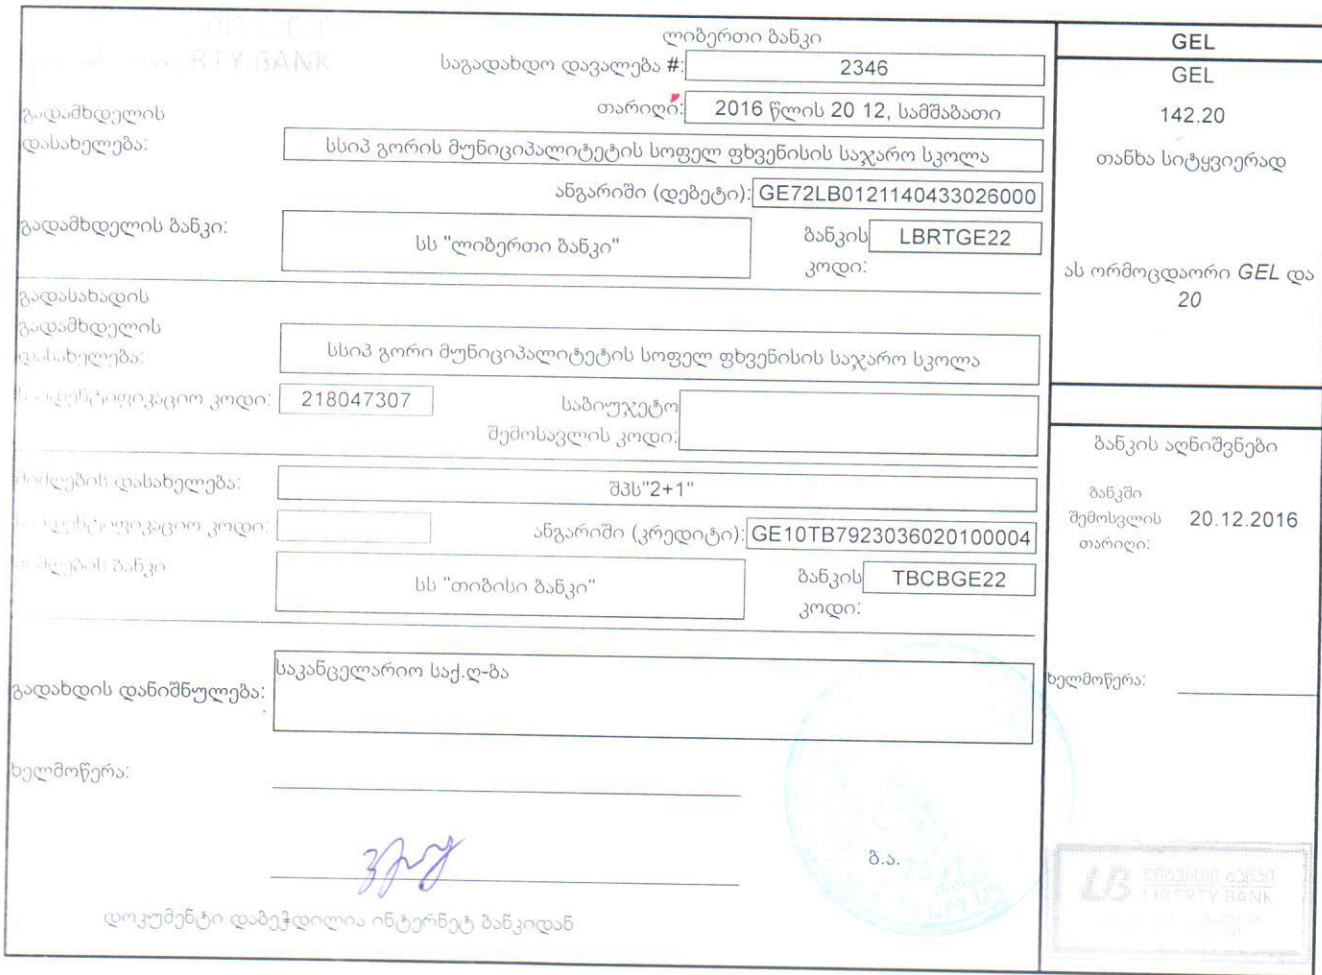 ლიბერთი ბანკი
საგადახდო დავალება #: 2346
თარიღი: 2016 წლის 20 12, სამშაბათი
გადამხდელის
დასახელება: სსიპ გორის მუნიციპალიტეტის სოფელ ფხვენისის საჯარო სკოლა
ანგარიში (დებეტი): GE72LB0121140433026000
გადამხდელის ბანკი: სს "ლიბერთი ბანკი" ბანკის კოდი: LBRTGE22
გადასახადის
გადამხდელის
დასახელება: სსიპ გორი მუნიციპალიტეტის სოფელ ფხვენისის საჯარო სკოლა
საიდენტიფიკაციო კოდი: 218047307 საბიუჯეტო
შემოსავლის კოდი:
მიმღების დასახელება: შპს"2+1"
საიდენტიფიკაციო კოდი: ანგარიში (კრედიტი): GE10TB7923036020100004
მიმღების ბანკი: სს "თიბისი ბანკი" ბანკის კოდი: TBCBGE22
გადახდის დანიშნულება: საკანცელარიო საქ.ღ-ბა
ხელმოწერა:
ბ.ა.
დოკუმენტი დაბეჭდილია ინტერნეტ ბანკიდან
GEL
GEL
142.20
თანხა სიტყვიერად
ას ორმოცდაორი GEL და
20
ბანკის აღნიშვნები
ბანკში
შემოსვლის 20.12.2016
თარიღი:
ხელმოწერა:
LB ლიბერთი ბანკი
LIBERTY BANK